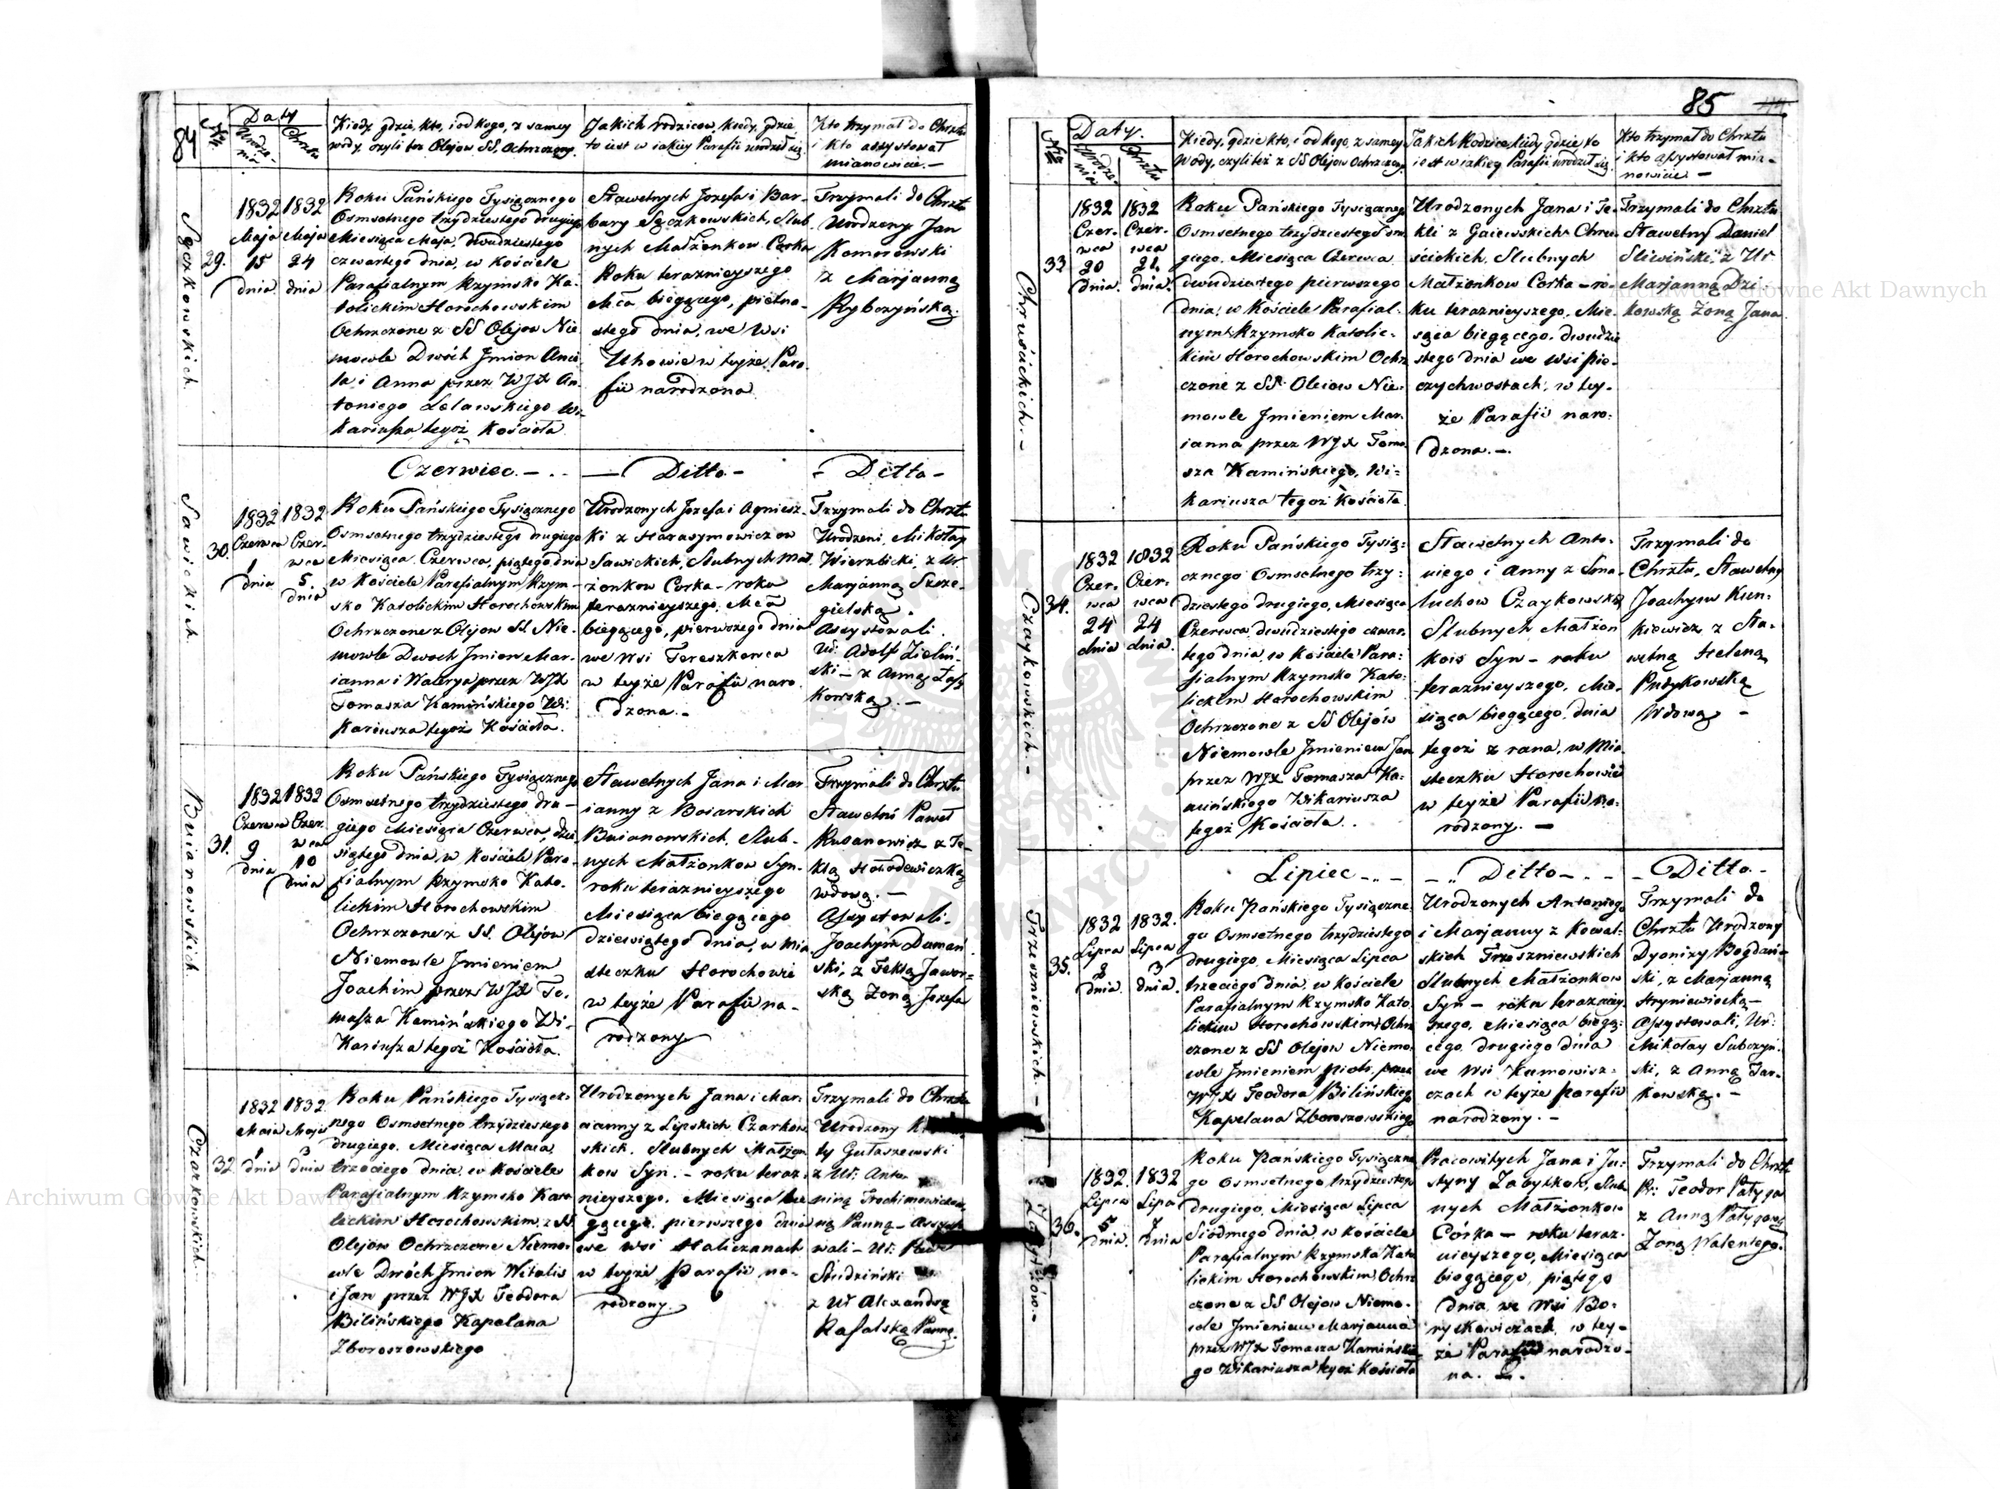 84
Nr
Daty
Urodze-
nia
Chrztu
Kiedy, gdzie, kto, i od kogo, z samey
wody, czyli też Olejow SS. Ochrzczony.
Jakich rodzicow, kiedy, gdzie
to iest w iakiey Parafii urodził się.
Kto trzymał do Chrztu
i kto assystował
mianowicie. —
Sączkowskich
29.
1832
Maja
15
dnia
1832
Maja
24
dnia
Roku Pańskiego Tysiącznego
Osmsetnego trzydziestego drugiego
Miesiąca Maja, dwudziestego
czwartego dnia, w Kościele
Parafialnym Rzymsko Ka-
tolickim Horochowskim
Ochrzczone z SS Olejow Nie
mowle Dwóch Jmion
i Anna przez WJX An-
toniego Lelawskiego Wi-
kariusza tegoż Kościoła
Sławetnych Jozefa i Bar-
bary Sączkowskich, Slub-
nych Małżonkow Corka
Roku teraznieyszego
Mca biegącego, piętna-
stego dnia, we Wsi
Uhowie w teyże Para-
fii narodzona
Trzymali do Chrztu
Urodzony Jan
Komorowski
z Marjanną
Rybczyńską.
Czerwiec. —
— Ditto —
- Ditto -
Sawickich
30.
1832
Czerwca
1
dnia
1832
Czer-
wca
5.
dnia
Roku Pańskiego Tysiącznego
Osmsetnego trzydziestego drugiego
Miesiąca Czerwca, piątego dnia
w Kościele Parafialnym Rzym-
sko Katolickim Horochowskim
Ochrzczone z Olejow SS. Nie-
mowle Dwoch Jmion Mar-
ianna i Walerya przez WJX
Tomasza Kamińskiego Wi-
kariusza tegoż Kościoła.
Urodzonych Jozefa i Agniesz-
ki z Harasymowiczow
Sawickich, Slubnych Mał
żonkow Corka — roku
teraznieyszego. Mca
biegącego, pierwszego dnia
we Wsi Tereszkowca
w teyże Parafii naro
dzona. —
Trzymali do Chrztu
Urodzeni, Mikołay
Wierzbicki, z Ur.
Marjanną Szcze-
gielską.
Assystowali.
Ur. Adolf Zieliń-
ski — z Anną
kowską. —
Buianowskich
31.
1832
Czerwca
9
dnia
1832
Czer
wca
10
dnia
Roku Pańskiego Tysiącznego
Osmsetnego trzydziestego dru-
giego Miesiąca Czerwca, dzie-
siątego dnia, w Kościele Para-
fialnym Rzymsko Kato-
lickim Horochowskim
Ochrzczone z SS. Olejow
Niemowle Jmieniem
Joachim przez WJX To-
masza Kamińskiego Wi-
kariusza tegoż Kościoła.
Sławetnych Jana i Mar
ianny z Boiarskich
Buianowskich, Slub-
nych Małżonkow Syn-
roku teraznieyszego
Miesiąca biegącego
dziewiątego dnia, w Mia
steczku Horochowie
w teyże Parafii na-
rodzony
Trzymali do Chrztu
Sławetni Paweł
Rusanowicz z Te-
klą Hołodewiczką
wdową. —
Assystowali.
Joachym Damań
ski, z Teklą Jawor-
ską Żoną Jozefa
Czarkowskich.
32.
1832
Maia
1
dnia
1832
Maja
3
dnia
Roku Pańskiego Tysiącz-
nego Osmsetnego trzydziestego
drugiego. Miesiąca Maia,
trzeciego dnia, w Kościele
Parafialnym Rzymsko Kato
lickim Horochowskim, z SS.
Olejow Ochrzczone Niemo-
wle Dwóch Jmion Witalis
i Jan przez WJX Teodora
Bilińskiego Kapelana
Zboroszowskiego
Urodzonych Jana i Mar-
ianny z Lipskich Czarkow
skich. Slubnych Małżon
kow Syn. — roku teraz-
nieyszego, Miesiąca bie
gącego, pierwszego dnia
we Wsi Haliczanach
w teyże Parafii na-
rodzony.
Trzymali do Chrztu
Urodzony
ty Gutaszewski
z Ur. Anto
niną Trochimowiczow
ną Panną — Assysto
wali — Ur.
Studziński
z Ur Alexandrą
Rafalską Panną.
85
Nr
Daty.
Urodze-
nia
Chrztu
Kiedy, gdzie kto, i od kogo, z samey
Wody, czyli też z SS Olejow Ochrzczony.
Jakich Rodzicow, kiedy, gdzie to
iest w iakiey Parafii urodził się.
Kto trzymał do Chrztu
i kto assystował mia-
nowicie. —
Chruścickich. —
33
1832
Czer-
wca
20
dnia.
1832
Czer-
wca
21.
dnia.
Roku Pańskiego Tysiącznego
Osmsetnego trzydziestego dru
giego. Miesiąca Czerwca
dwudziestego pierwszego
dnia, w Kościele Parafial-
nym Rzymsko Katolic-
kim Horochowskim Ochrz
czone z SS. Oleiow Nie-
mowle Jmieniem Mar-
ianna przez WJX Toma-
sza Kamińskiego, Wi-
kariusza tegoż Kościoła
Urodzonych Jana i Te-
kli z Gaiewskich Chru-
ścickich, Slubnych
Małżonkow Corka — ro-
ku teraznieyszego, Mie-
siąca biegącego, dwudzie
stego dnia we Wsi Pie-
czychwostach, w tey-
że Parafii naro-
dzona. —
Trzymali do Chrztu
Sławetny Daniel
Sliwiński, z Ur
Marjanną Dzi-
kowską Żoną Jana
Czaykowskich. —
34.
1832
Czer-
wca
24
dnia
1832
Czer-
wca
24
dnia.
Roku Pańskiego Tysią-
cznego Osmsetnego trzy-
dziestego drugiego, Miesiąca
Czerwca dwudziestego czwar-
tego dnia, w Kościele Para-
fialnym Rzymsko Kato-
lickim Horochowskim
Ochrzczone z SS Olejów
Niemowle Jmieniem Jan
przez WJX Tomasza Ka-
mińskiego Wikariusza
tegoż Kościoła.
Sławetnych Anto-
niego i Anny z Sma-
luchow Czaykowskich
Slubnych Małżon
kow Syn — roku
teraznieyszego, Mie-
siąca biegącego, dnia
tegoż z rana, w Mia
steczku Horochowie
w teyże Parafii na-
rodzony. —
Trzymali do
Chrztu, Sławetny
Joachym Kun-
kiewicz z Sła-
wetną Heleną
Pudykowską
Wdową —
Lipiec —
— Ditto —
— Ditto. —
Trzeszniewskich. —
35.
1832
Lipca
2
dnia.
1832.
Lipca
3
dnia.
Roku Pańskiego Tysiączne-
go Osmsetnego trzydziestego
drugiego, Miesiąca Lipca
trzeciego dnia, w Kościele
Parafialnym Rzymsko Kato-
lickim Horochowskim Ochrz
czone z SS Olejow Niemo-
wle Jmieniem Piotr, przez
WJX Teodora Bilińskiego
Kapelana Zboroszowskiego
Urodzonych Antoniego
i Marjanny z Kowal-
skich Trzeszniewskich
Slubnych Małżonkow
Syn — roku terazniey
szego, Miesiąca biegą-
cego, drugiego dnia
we Wsi Kumowisz-
czach w teyże Parafii
narodzony. —
Trzymali do
Chrztu Urodzony
Dyonizy Bogdań-
ski, z Marjanną
Hryniawiecką —
Assystowali, Ur:
Mikołay Sobczyń
ski, z Anną Jar-
kowską. —
36.
1832.
Lipca
5
dnia.
1832
Lipca
7
dnia
Roku Pańskiego Tysiączne
go Osmsetnego, trzydziestego
drugiego, Miesiąca Lipca
Siódmego dnia, w Kościele
Parafialnym Rzymsko Kato
lickim Horochowskim, Ochrz
czone z SS Olejow Niemo-
wle Jmieniem Marjanna
przez WJX Tomasza Kamińskie
go Wikariusza tegoż Kościoła
Pracowitych Jana i Ju-
styny Zabytkow, Slub
nych Małżonkow
Córka — roku teraz-
nieyszego, Miesiąca
biegącego, piątego
dnia, we Wsi Bo-
ryskowiczach, w tey-
że Parafii narodzo-
na. —
Trzymali do Chrztu
Pr: Teodor Pałyga
z Anną Pałygową
Żoną Walentego.
Archiwum Główne Akt Dawnych
Archiwum Główne Akt Dawnych